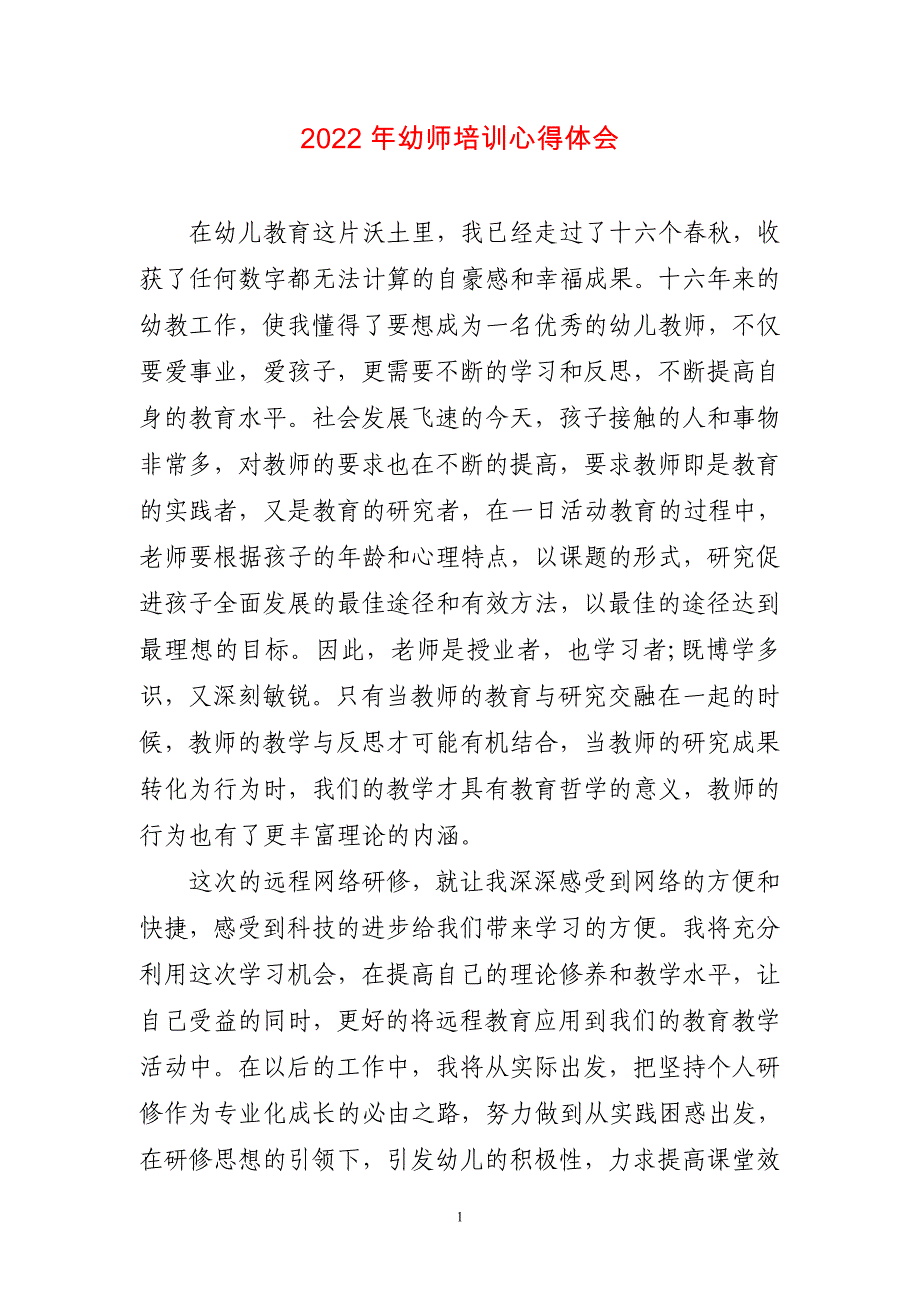 2022 年幼师培训心得体会
在幼儿教育这片沃土里，我已经走过了十六个春秋，收
获了任何数字都无法计算的自豪感和幸福成果。十六年来的
幼教工作，使我懂得了要想成为一名优秀的幼儿教师，不仅
要爱事业，爱孩子，更需要不断的学习和反思，不断提高自
身的教育水平。社会发展飞速的今天，孩子接触的人和事物
非常多，对教师的要求也在不断的提高，要求教师即是教育
的实践者，又是教育的研究者，在一日活动教育的过程中，
老师要根据孩子的年龄和心理特点，以课题的形式，研究促
进孩子全面发展的最佳途径和有效方法，以最佳的途径达到
最理想的目标。因此，老师是授业者，也学习者;既博学多
识，又深刻敏锐。只有当教师的教育与研究交融在一起的时
候，教师的教学与反思才可能有机结合，当教师的研究成果
转化为行为时，我们的教学才具有教育哲学的意义，教师的
行为也有了更丰富理论的内涵。
这次的远程网络研修，就让我深深感受到网络的方便和
快捷，感受到科技的进步给我们带来学习的方便。我将充分
利用这次学习机会，在提高自己的理论修养和教学水平，让
自己受益的同时，更好的将远程教育应用到我们的教育教学
活动中。在以后的工作中，我将从实际出发，把坚持个人研
修作为专业化成长的必由之路，努力做到从实践困惑出发，
在研修思想的引领下，引发幼儿的积极性，力求提高课堂效
1